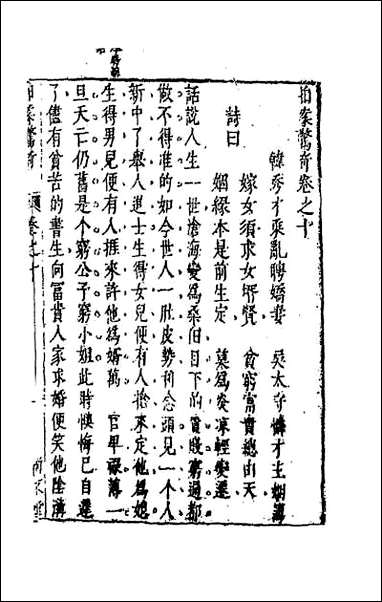 拍案驚奇卷之十
韓秀才乘亂聘嬌妻　吳太守憐才主姻簿
詩曰
嫁女須求女婿賢　貧窮富貴總由天
姻緣本是前生定　莫為炎涼輕變遷
話說人生一世滄海變為桑田目下的貴賤窮通都
做不得准的如今世人一肚皮勢利念頭見一個人
新中了舉人進士生得女兒便有人搶來定他為媳
生得男兒便有人捱來許他為婿萬一官卑祿薄一
旦夭亡仍舊是個窮公子窮小姐此時懊悔已自遲
了儘有貧苦的書生向富貴人家求婚便笑他陰溝
拍案驚奇　卷之十